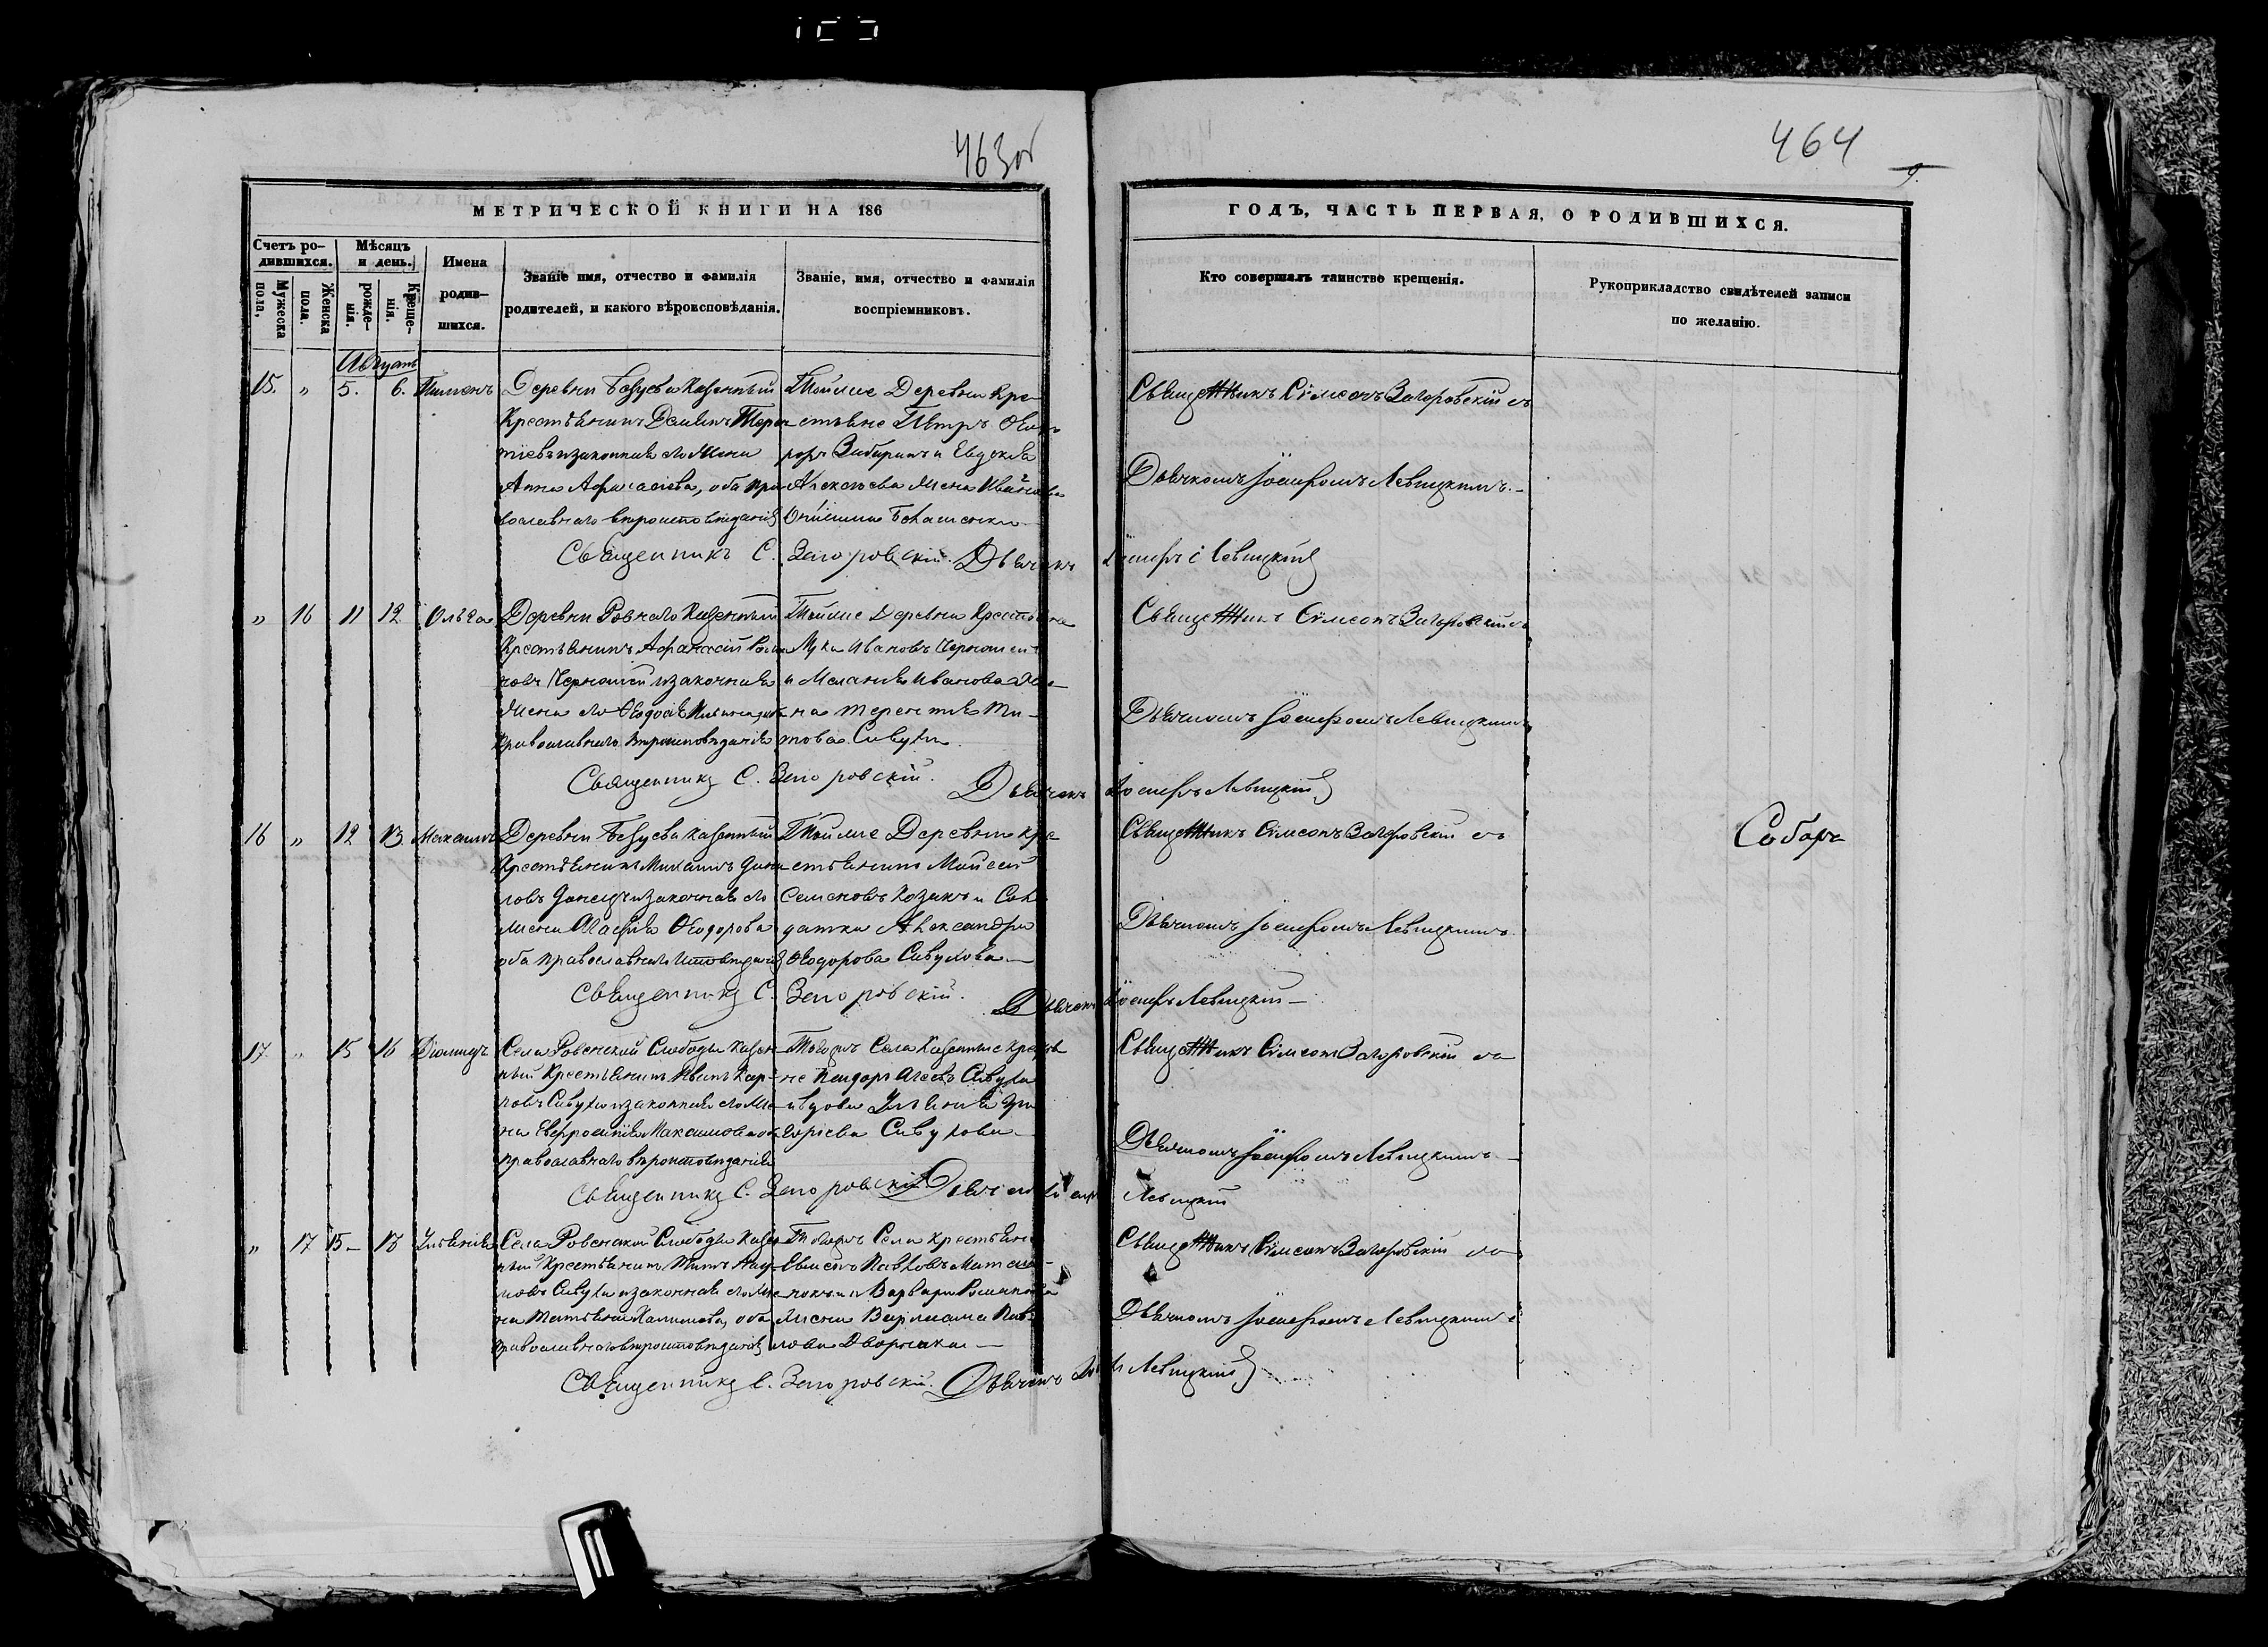 463об
464
9.
МЕТРИЧЕСКОЙ КНИГИ НА 186
ГОДЪ, ЧАСТЬ ПЕРВАЯ, О РОДИВШИХСЯ.
Счетъ ро-
дившихся.
Мужеска
пола,
Женска
пола.
Мѣсяцъ
и день.
рожде-
нія.
Креще-
нія.
Имена
родив-
шихся.
Званіе имя, отчество и фамилія
родителей, и какого вѣроисповѣданія.
Званіе, имя, отчество и фамилія
воспріемниковъ.
Кто совершалъ таинство крещенія.
Рукоприкладство свидѣтелей записи
по желанію.
Августъ
15. „ 5. 6. Пименъ
Деревни Безуева Казенный
Крестьянинъ Терен-
тіевъ и законная его Жена
Анна Афанасіева, оба пра-
вославнаго вѣроисповѣданія
Тойже Деревни Кре-
стьяне Петръ
и Евдокія
Алексѣева Жена Иванова
Священникъ Сѵмеонъ Загоровскій съ
Дьячкомъ Іосифомъ Левицкимъ.
Священникъ С. Загоровскій. Дьячекъ Іосифъ Левицкій
„ 16 11 12 Ольга
Деревни Ровнаго Казенный
Крестьянинъ Афанасій
и законная
Жена его Ѳеодосія
Православнаго вѣроисповѣданія
Тойже Деревни Крестьяне
Лука Ивановъ
и Меланія Иванова
Жена Терентія Ти-
това Сивухи.
Священникъ Сѵмеонъ Загоровскій съ
Дьячкомъ Іосифомъ Левицкимъ
Священникъ С. Загоровскій. Дьячекъ Іосифъ Левицкій
16 „ 12 13 Максимъ
Деревни Безуева Казенный
Крестьянинъ Михаилъ Дани-
ловъ и законная его
Жена Агафія Ѳеодорова
оба православнаго исповѣданія
Тойже Деревни Кре-
стьянинъ Мойсей
Семеновъ Козакъ и Сол-
датка Александра
Ѳеодорова Сивухова
Священникъ Сѵмеонъ Загоровскій съ
Дьячкомъ Іосифомъ Левицкимъ
Соборъ
Священникъ С. Загоровскій. Дьячекъ Іосифъ Левицкій
17 „ 15 16 Діомидъ
Села Ровенской Слободы Казен-
ный Крестьянинъ Иванъ Кар-
повъ Сивуха и законная его Же-
на Евфросинія Максимова оба
православнаго вѣроисповѣданія
Тогожъ Села Казенные Крестья-
не Агеевъ Сивуха
и вдова Ульянія Гри-
горіева Сивухова
Священникъ Сѵмеонъ Загоровскій съ
Дьячкомъ Іосифомъ Левицкимъ
Священникъ С. Загоровскій. Дьячекъ Іосифъ Левицкій
„ 17 15 18 Ульянія
Села Ровенской Слободы Казен-
ный Крестьянинъ Титъ Нау-
мовъ Сивуха и законная его Же-
на Татьяна оба
православнаго вѣроисповѣданія
Тогожъ Села Крестьяне
Павловъ
и Варвара Романова
Жена Варлаама Пав-
лова Дворника
Священникъ Сѵмеонъ Загоровскій съ
Дьячкомъ Іосифомъ Левицкимъ
Священникъ С. Загоровскій. Дьячекъ Левицкій